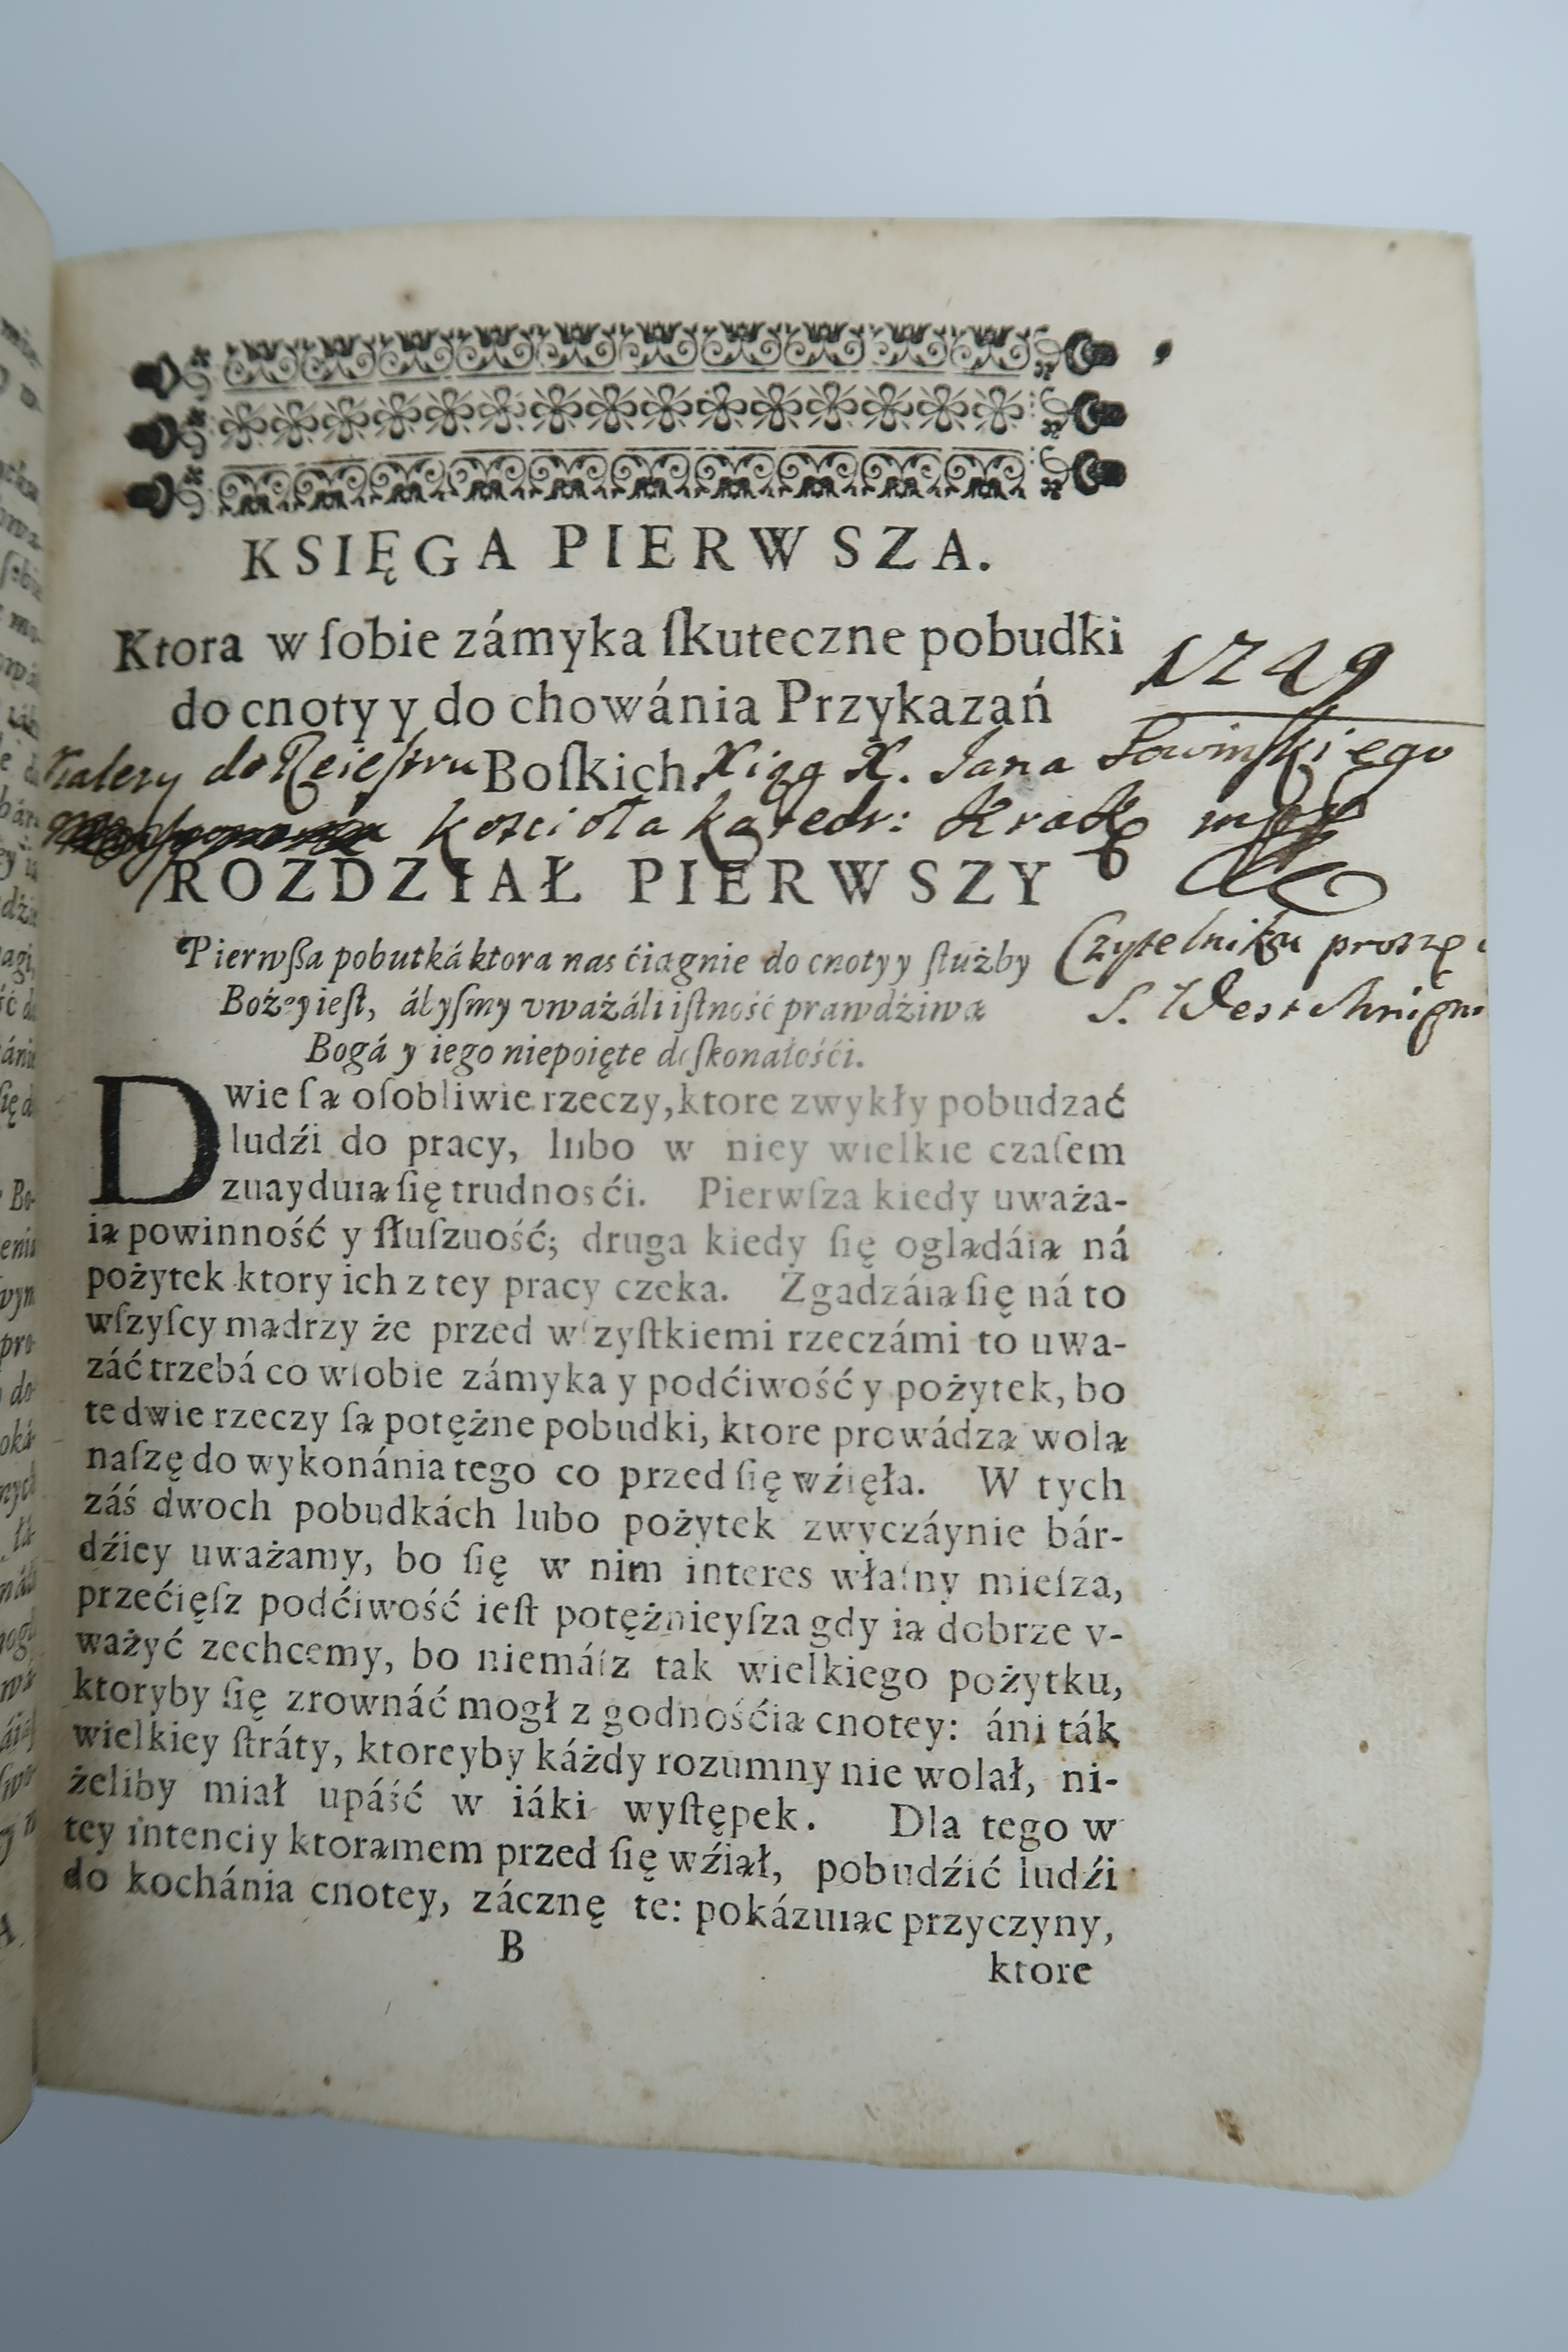 KSIĘGA PIERWSZA.
Ktora w ſobie zámyka ſkuteczne pobudki
1749
do cnoty y do chowánia Przykazań
należy do Reieſtru Boſkich. Xiąg X. Jana
kościoła katedr: Krak
ROZDZIAŁ PIERWSZY
Pierwßa pobutká ktora nas ćiągnie do cnoty y ſłużby
Czytelniku proszę
Bożey ieſt, ábyſmy vważáli iſtność prawdźiwą
S. Westchnię
Bogá y iego niepoięte doſkonałośći.
Dwie ſą oſobliwie rzeczy, ktore zwykły pobudzać
ludźi do pracy, lubo w niey wielkie czaſem
zuayduią ſię trudnosći. Pierwſza kiedy uważa-
ią powinność y ſłuſzuość; druga kiedy ſię oglądáią ná
pożytek ktory ich z tey pracy czeka. Zgadzáią ſię ná to
wſzyſcy mądrzy że przed wſzyſtkiemi rzeczámi to uwa-
záć trzebá co wſobie zámyka y podćiwość y pożytek, bo
te dwie rzeczy ſą potężne pobudki, ktore prowádzą wolą
naſzę do wykonánia tego co przed ſię wźięła. W tych
záś dwoch pobudkách lubo pożytek zwyczáynie bár-
dźiey uważamy, bo ſię w nim interes właſny mieſza,
przećięſz podćiwość ieſt potężnieyſza gdy ią dobrze v-
ważyć zechcemy, bo niemáſz tak wielkiego pożytku,
ktoryby ſię zrownáć mogł z godnośćią cnotey: áni ták
wielkiey ſtráty, ktoreyby káżdy rozumny nie wolał, ni-
żeliby miał upáść w iáki wyſtępek. Dla tego w
tey intenciy ktorąmem przed ſię wźiął, pobudźić ludźi
do kochánia cnotey, zácznę te: pokázuiąc przyczyny,
B
ktore